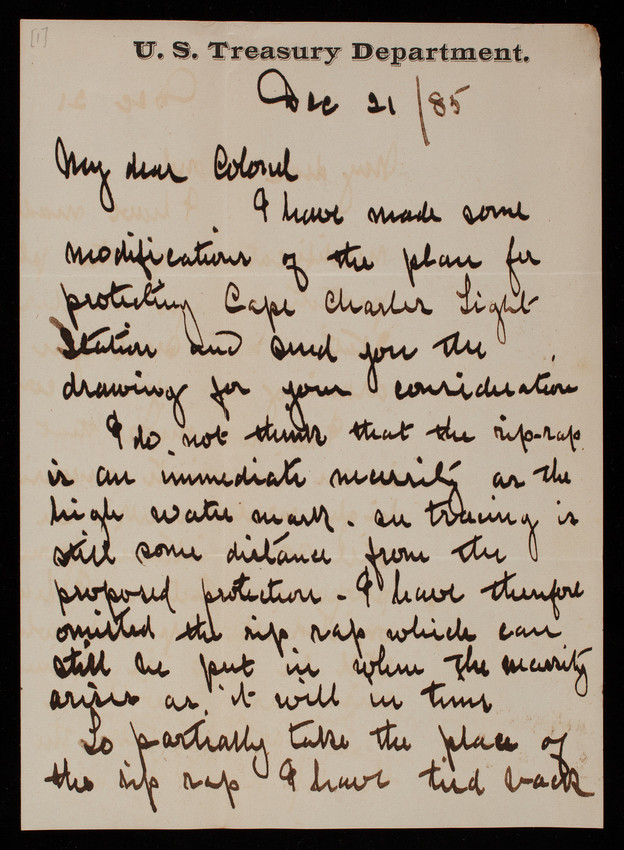 [1]
U. S. Treasury Department.
Dec 21/85
My dear Colonel
I have made some
modifications of the plan for
protecting Cape Charles Light
Station and send you the
drawing for your consideration
I do not think that the rip-rap
is an immediate necessity as the
high water mark. see tracing is
still some distance from the
proposed protection - I have therefore
omitted the rip rap which can
still be put in when the necessity
arises as it will in time
To partially take the place of
the rip rap I have tied back